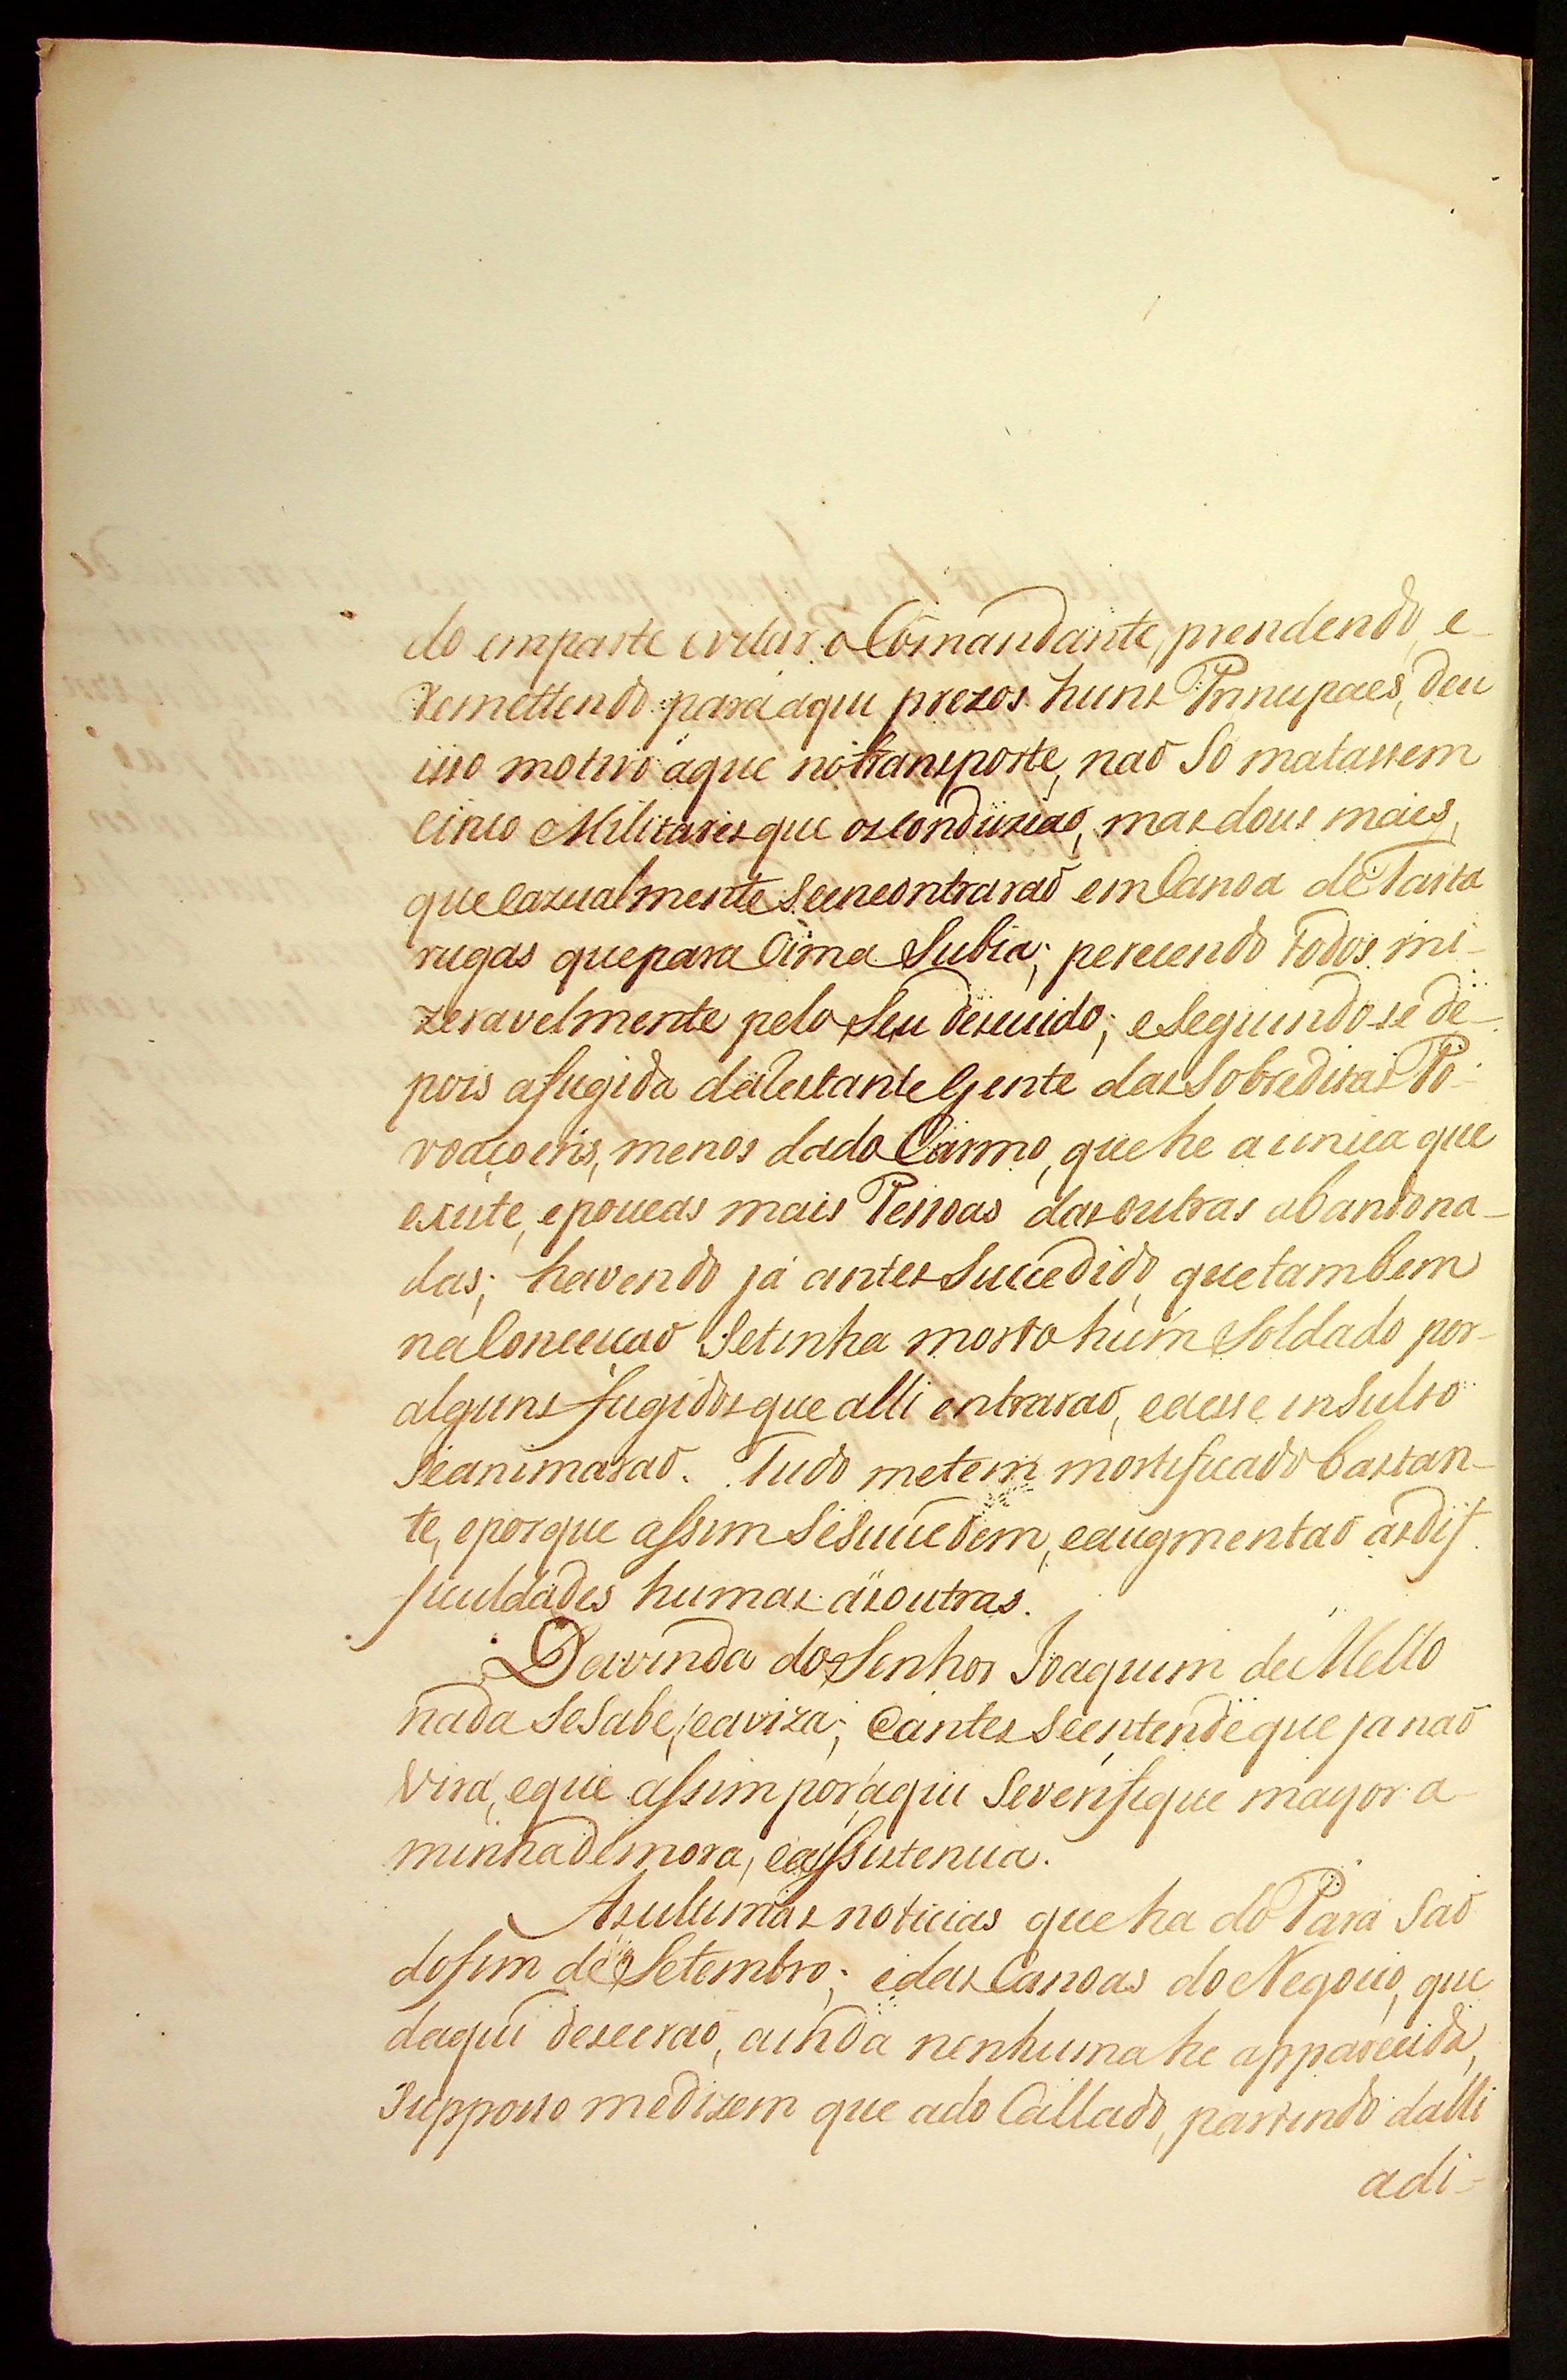 do emparte evitar o Comandante, prendendo, e
remettendo para aqui prezos huns Principaes, deu
isso motivo áque no transporte, naõ só matassem
cinco Militares que os conduziaõ, mas dous mais,
que cazualmente se encontraraõ em Canoa de Tarta
rugas que para Cima Subia; perecendo todos mi-
zeravelmente pelo Seu descuido; e Seguindo-se de-
pois a fugida da restante Gente das Sobreditas Po-
voaçoens, menos da do Carmo, que he a unica que
existe, e poucas mais Pessoas das outras abandona-
das; havendo já antes Succedido, que tambem
na Conceiçaõ Se tinha morto hum Soldado por
alguns fugidos que alli entraraõ, e a esse insulto
Se animaraõ. Tudo me tem mortificado bastan-
te, e porque assim Se Succedem, e augmentaõ as dif-
ficuldades humas ás outras.
Da vinda do Senhor Joaquim de Mello
nada Se Sabe, e aviza; e antes Se entende que ja naõ
virá, e que assim por aqui Se verifique mayor a
minha demora, e assistencia.
As ultimas noticias que ha do Pará Saõ
do fim de Setembro; e das Canoas do Negocio, que
daqui desceraõ, ainda nenhuma he apparecida,
Supposto me dizem que a do Callado, partindo dalli
adi-